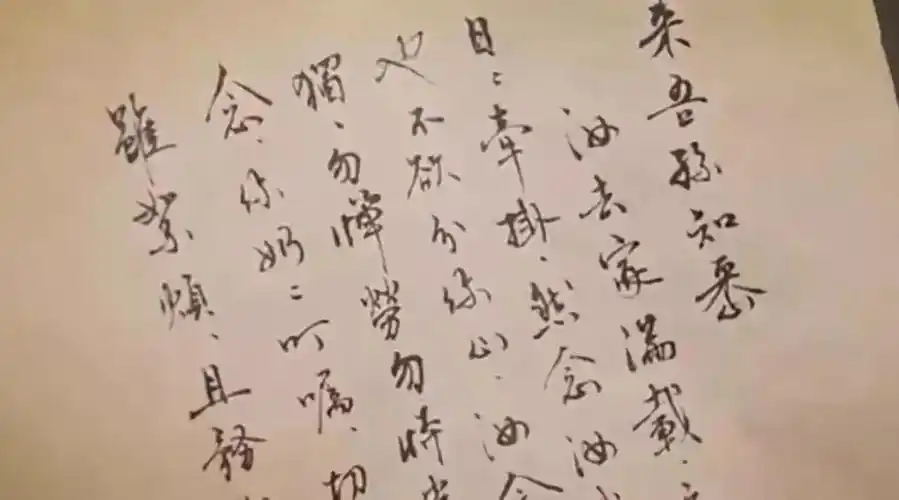 吾孫知悉
汝去家滿載、
日:牽掛、然念汝
也不欲分你心、汝念
獨、勿憚勞勿恃
念、你奶:叮嘱、切
雖絮煩、且務